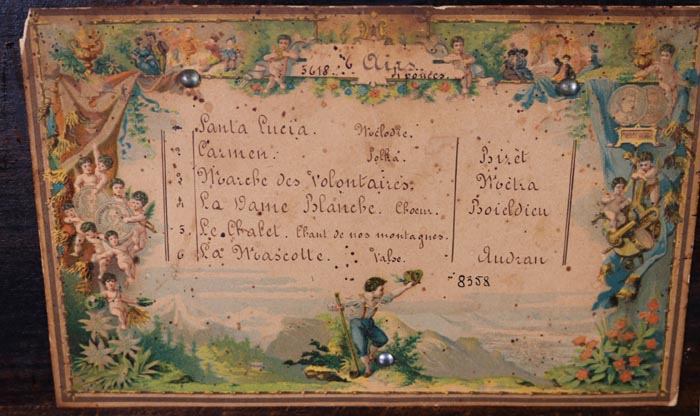 5618. 6 Airs
4 pouces.
1 Santa Lucia. Mélodie.
2 Carmen. Polka. Bizèt
3 Marche des Volontaires. Métra
4 La Dame Blanche. Choeur. Boieldieu
5. Le Chalet. Chant de nos montagnes.
6 La Mascotte. Valse. Audran
8358